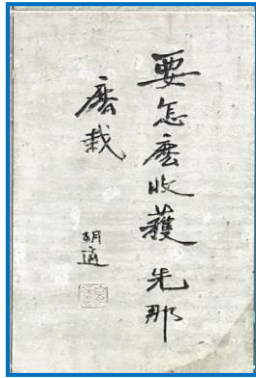 要怎麽收穫先那
麽栽
胡適